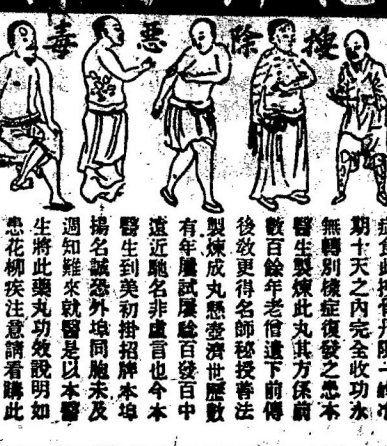 搜除惡毒
期十天之內完全收功永
無轉別樣症復發之患本
醫生製煉此丸其方係前
數百餘年老僧遺下前傳
後效更得名師秘授善法
製煉成丸懸壺濟世歷數
有年屢試屢驗百發百中
遠近馳名非虛言也今本
醫生到美初掛招牌本埠
揚名誠恐外埠同胞未及
週知難來就醫是以本醫
生將此藥丸功效說明如
患花柳疾注意請看購此